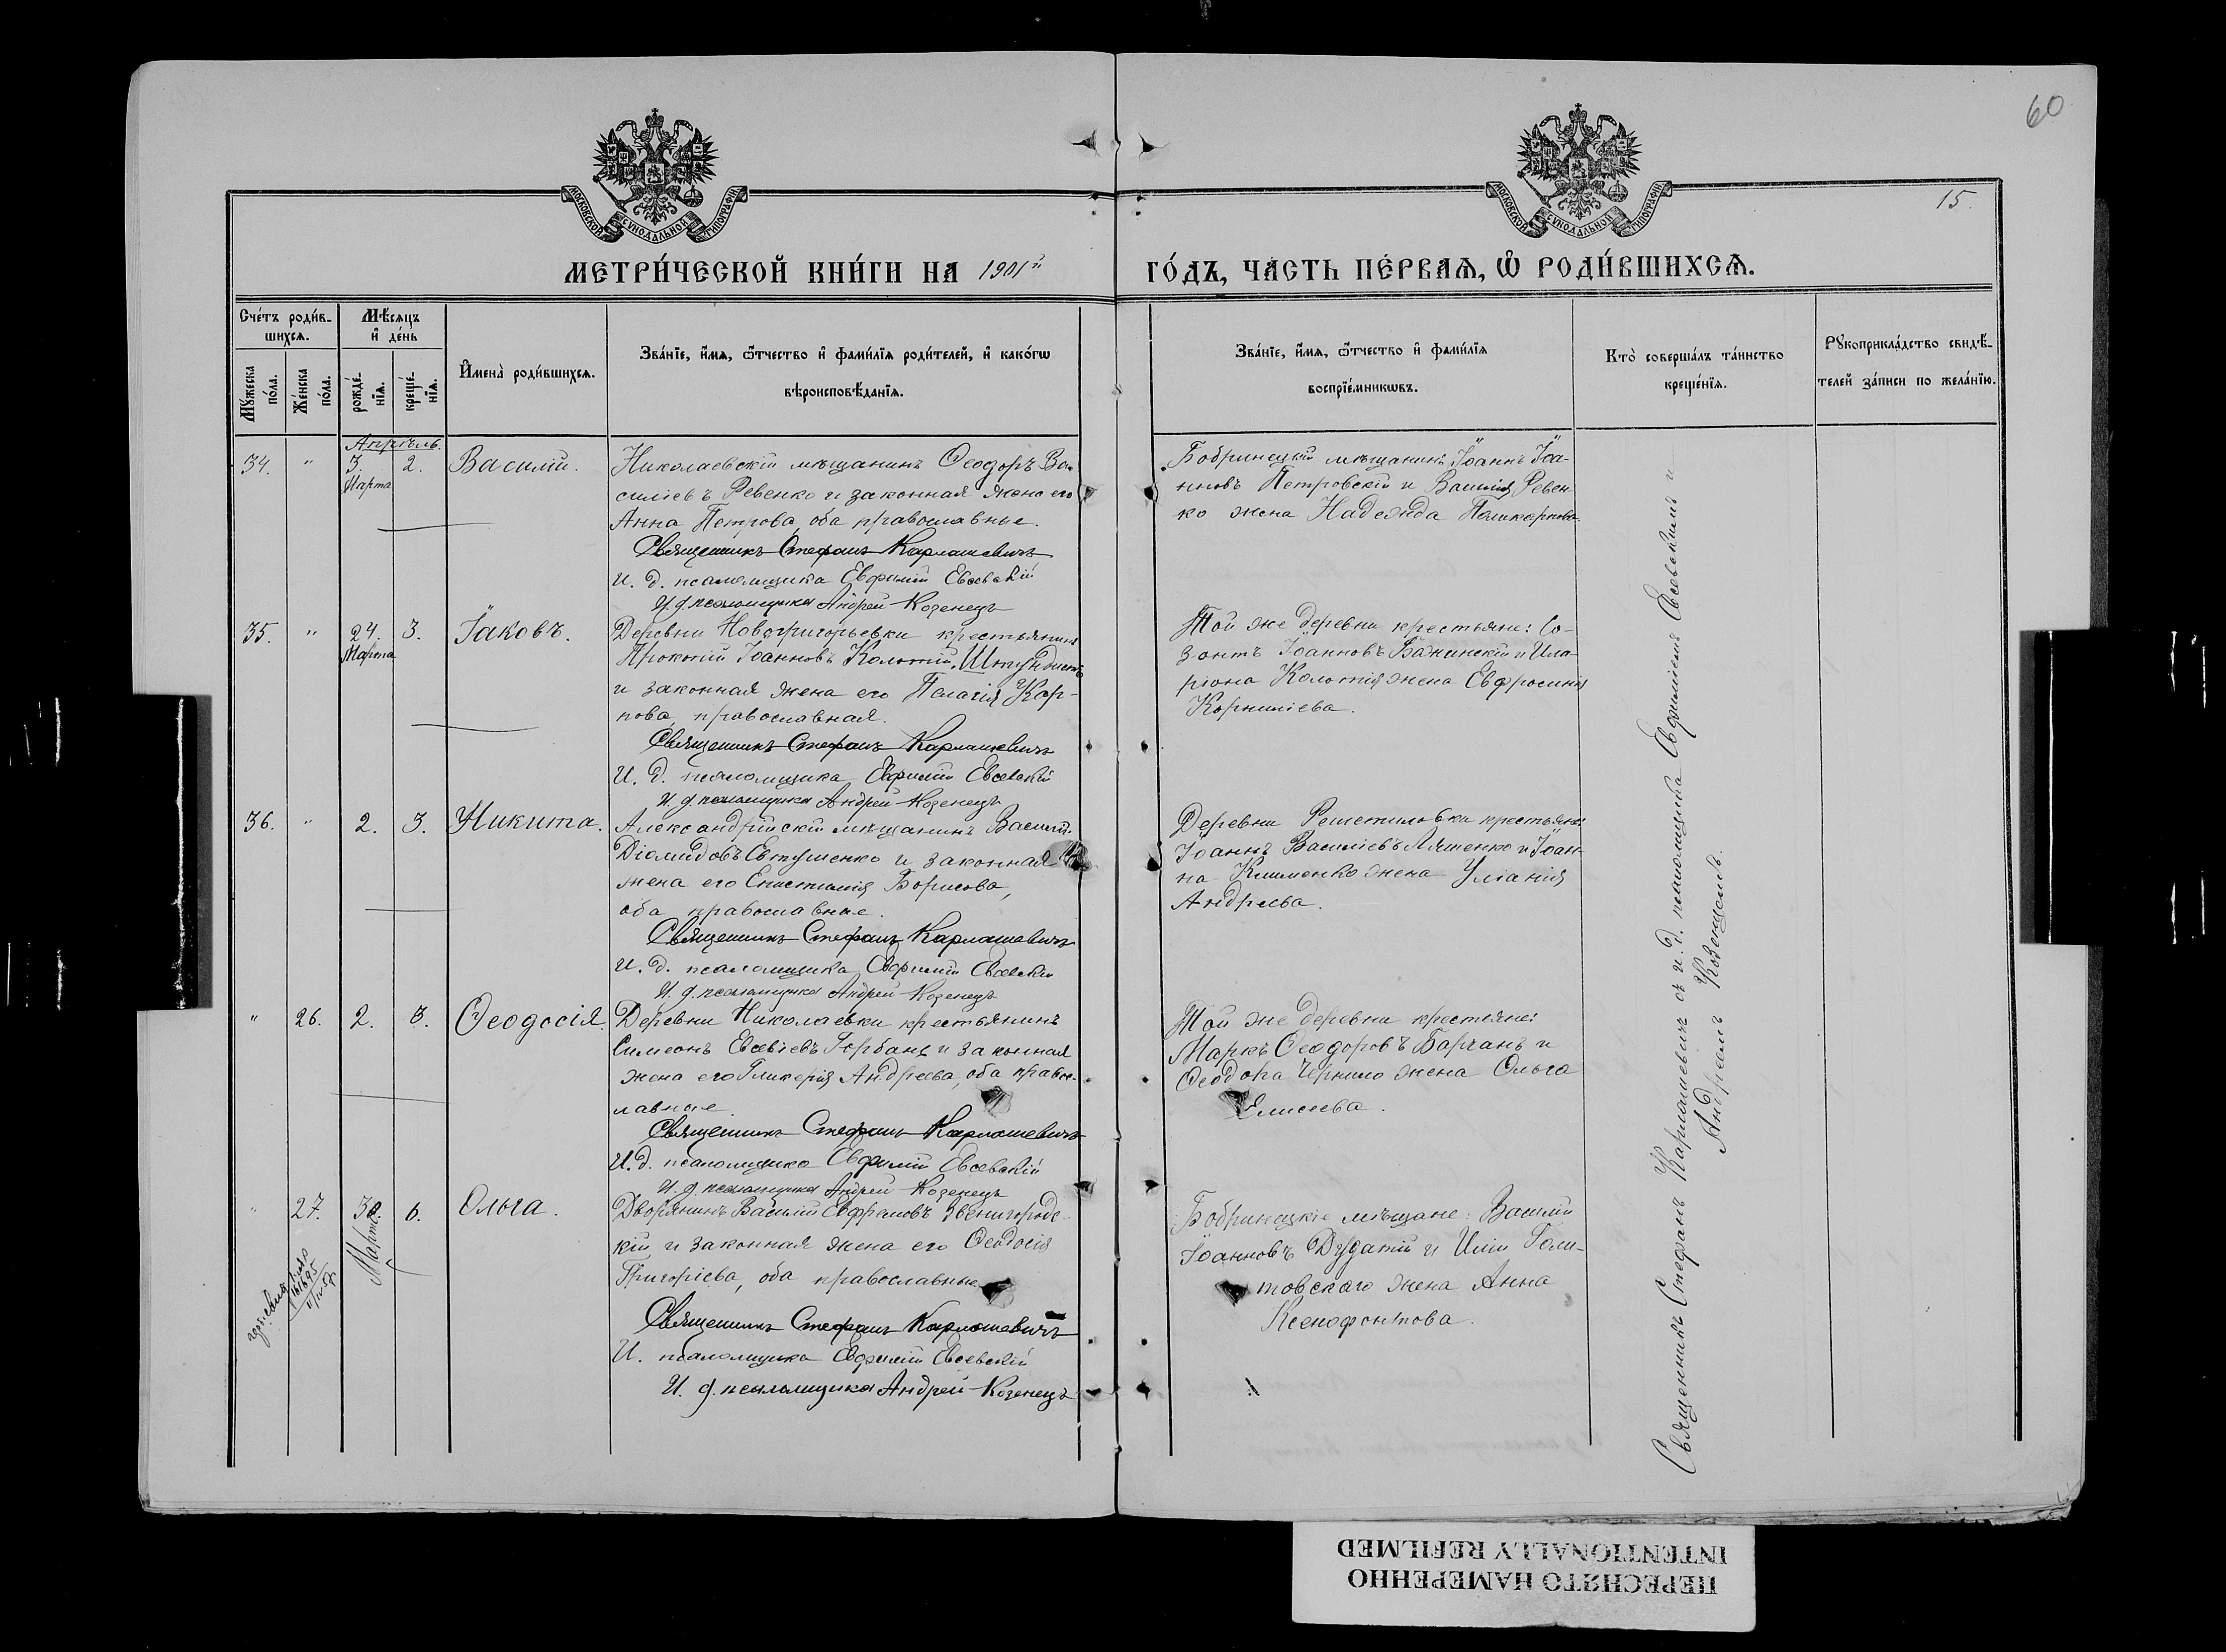 60
МОСКОВСКОЙ СѴНОДАЛЬНОЙ ТИПОГРАФІИ
МОСКОВСКОЙ СѴНОДАЛЬНОЙ ТИПОГРАФІИ
15.
МЕТРИ́ЧЕСКОЙ КНИ́ГИ НА 1901й ГО́ДЪ, ЧА́СТЬ ПЕ́РВАѦ, Ѡ҆ РОДИ́ВШИХСѦ.
Сче́тъ роди́в-
шихсѧ.
Мꙋ́жеска по́ла.
Же́нска по́ла.
Мѣ́сѧцъ и҆ де́нь
рожде́-нїѧ.
креще́-нїѧ.
И҆мена̀ роди́вшихсѧ.
Зва́нїе, и҆́мѧ, ѻ҆́тчество и҆ фами́лїѧ роди́телей, и҆ како́гѡ
вѣроисповѣ́данїѧ.
Зва́нїе, и҆́мѧ, ѻ҆́тчество и҆ фами́лїѧ
воспрїе́мникѡвъ.
Кто̀ соверша́лъ та́инство
креще́нїѧ.
Рꙋкоприкла́дство свидѣ́-
телей за́писи по жела́нїю.
Апрѣль.
34. " 3. Марта 2. Василій.
Николаевскій мѣщанинъ Ѳеодоръ Ва-
силіевъ Ревенко и законная жена его
Анна Петрова, оба православные.
Священникъ Стефанъ Карлашевичъ
И. д. псаломщика Евфимій Евсевскій
И. д. псаломщика Андрей Козенецъ
Бобринецкій мѣщанинъ Іоаннъ Іоа-
нновъ Петровскій и Василія Ревен-
ко жена Надежда Поликарпова.
35. " 24. Марта 3. Іаковъ.
Деревни Новогригорьевки крестьянинъ
Прокопій Іоанновъ Колотій, Штундистъ
и законная жена его Пелагія Кар-
пова, православная.
Священникъ Стефанъ Карлашевичъ
И. д. псаломщика Евфимій Евсевскій
И. д. псаломщика Андрей Козенецъ
Той же деревни крестьяне: Со-
зонтъ Іоанновъ Бажинскій и Ила-
ріона Колотія жена Евфросинія
Корниліева.
36. " 2. 3. Никита.
Александрійскій мѣщанинъ Василій
Діомидовъ Евтушенко и законная
жена его Епистимія Борисова,
оба православные.
Священникъ Стефанъ Карлашевичъ
И. д. псаломщика Евфимій Евсевскій
И. д. псаломщика Андрей Козенецъ
Деревни Решетиловки крестьяне:
Іоаннъ Василіевъ Ляшенко и Іоан-
на Клименко жена Уліанія
Андреева.
" 26. 2. 3. Ѳеодосія.
Деревни Николаевки крестьянинъ
Симеонъ Евсевіевъ Горбань и законная
жена его Гликерія Андреева, оба право-
славные.
Священникъ Стефанъ Карлашевичъ
И. д. псаломщика Евфимій Евсевскій
И. д. псаломщика Андрей Козенецъ
Той же деревни крестьяне:
Маркъ Ѳеодоровъ Барчанъ и
Ѳеодора Чернило жена Ольга
Елисеева.
" 27. 30. Марта 6. Ольга.
Дворянинъ Василій Евфремовъ Звенигородс-
кій и законная жена его Ѳеодосія
Григоріева, оба православные
Священникъ Стефанъ Карлашевичъ
И. псаломщика Евфимій Евсевскій
И. д. псаломщика Андрей Козенецъ
Бобринецкіе мѣщане: Василій
Іоанновъ Дудатій и Иліи Голи-
товскаго жена Анна
Ксенофонтова.
Священникъ Стефанъ Карлашевичъ съ и. д. псаломщика Евфиміемъ Евсевскимъ и
Андреемъ Козенцемъ.
ПЕРЕСНЯТО НАМЕРЕННО
INTENTIONALLY REFILMED